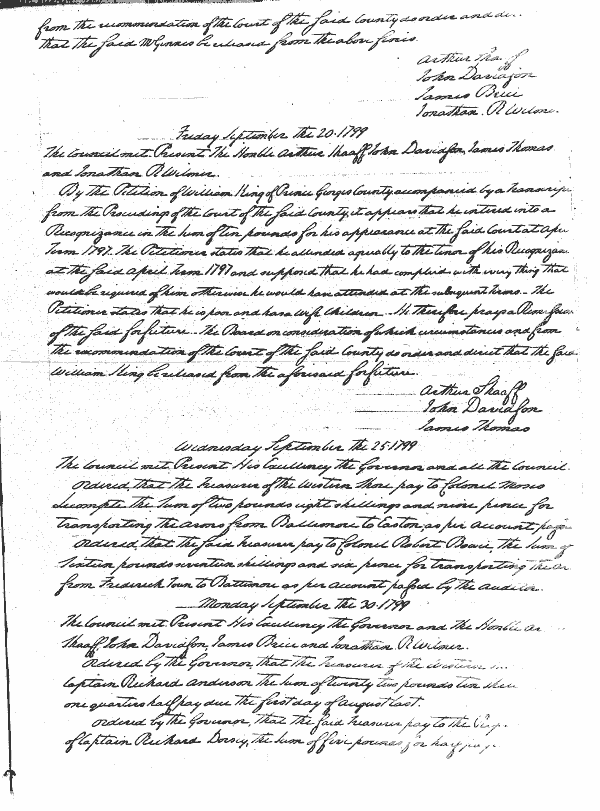 from the recommendation of the Court of the said County do order and
that the said McGinnes be released from the above fines.
Arthur Shaaff
John Davidson
James Brice
Jonathan R Wilmer
Friday September the 20. 1799
The Council met. Present The Honble Arthur Shaaff John Davidson, James Thomas
and Jonathan R. Wilmer.
By the Petition of William King of Prince Georges County accompanied by a transcrip
from the Proceedings of the Court of the said County, it appears that he entered into a
Recognizance in the sum of ten pounds for his appearance at the said Court at Apr
Term 1797. The Petitioner states that he attended agreeably to the tenor of his Recogniza
at the said April Term 1797 and supposed that he had complied with every thing that
would be required of him otherwise he would have attended at the subsequent terms. The
Petitioner states that he is poor and has a wife Children He therefore prays a
of the said forfeiture. The Board on consideration of which circumstances and from
the recommendation of the Court of the said County do order and direct that the said
William King be released from the aforesaid forfeiture.
Arthur Shaaff
John Davidson
James Thomas
Wednesday September the 25. 1799
The Council met. Present His Excellency the Governor and all the Council.
Ordered, that the Treasurer of the Western Shore pay to Colonel Moses
Lecompte the sum of two pounds eight shillings and nine pence for
transporting the arms from Baltimore to Easton, as per account
Ordered, that the said Treasurer pay to Colonel Robert Bowie, the sum of
sixteen pounds seventeen shillings and six pence for transporting the
from Frederick Town to Baltimore as per account passed by the Auditor.
Monday September the 30. 1799
The Council met Present His Excellency the Governor and the Honble Ar
Shaaff John Davidson, James Brice and Jonathan R Wilmer.
Ordered by the Governor, that the Treasurer of the Western
Captain Richard Anderson the sum of twenty two pounds ten
one quarters half pay due the first day of August last.
Ordered by the Governor, that the said Treasurer pay to the
of Captain Richard Dorsey, the sum of five pounds for half pay